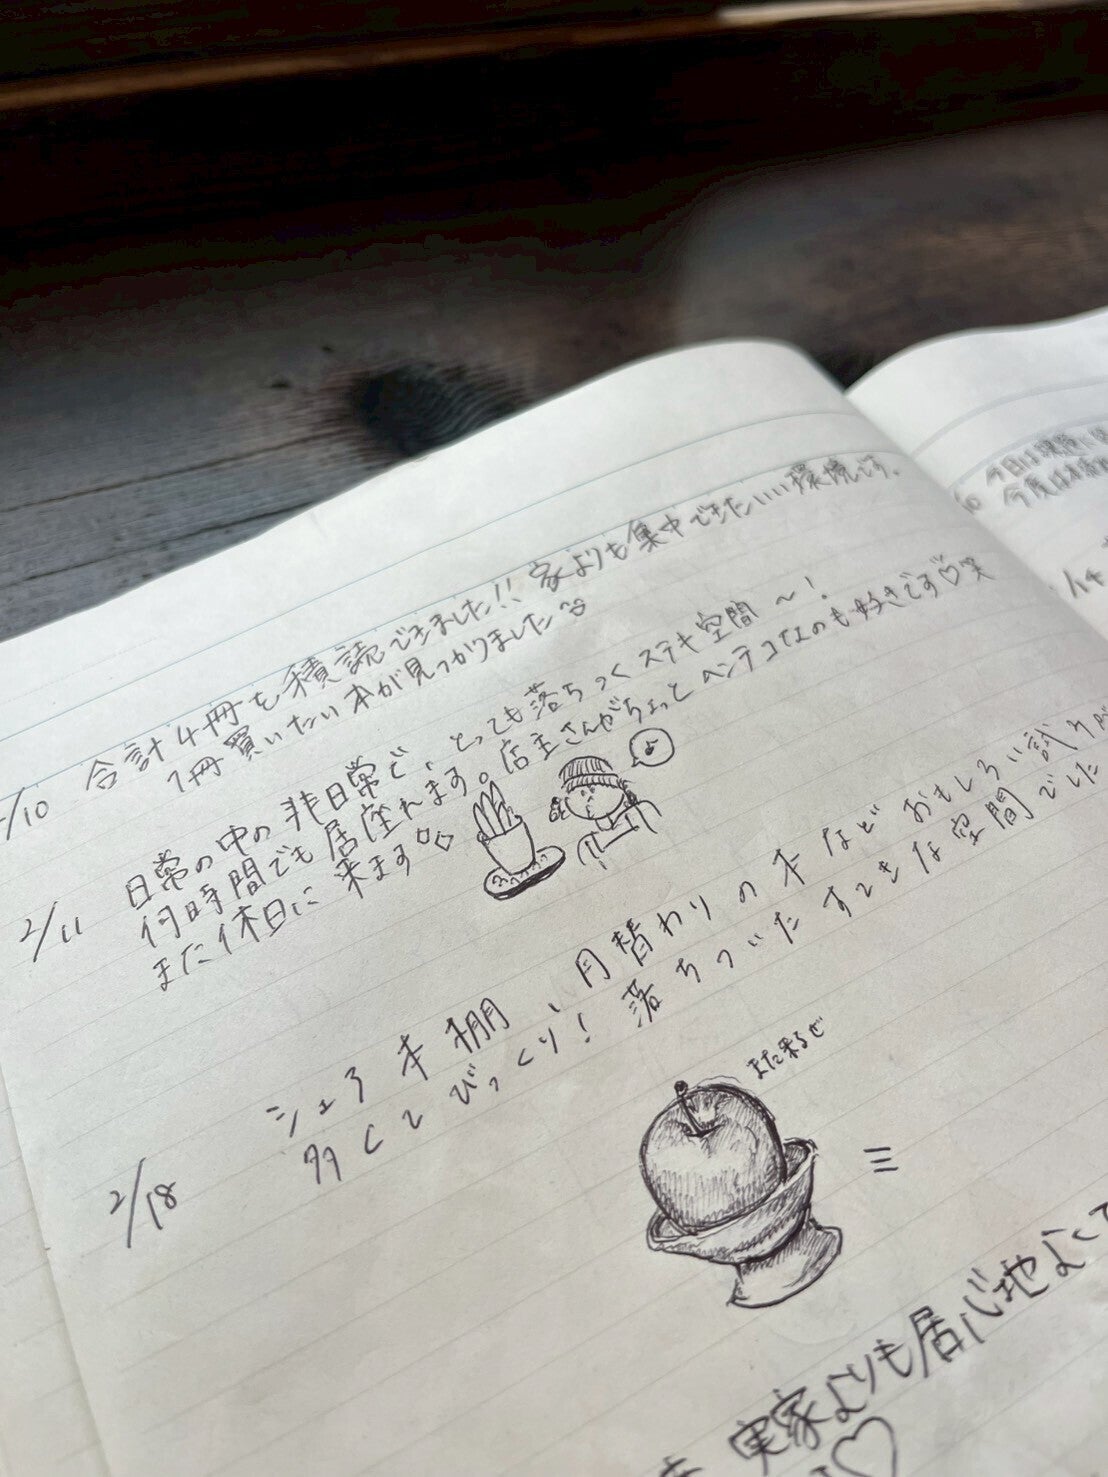 /10 合計4冊を積読できました!! 家よりも集中できたいい環境です。
1冊買いたい本が見つかりました
2/11 日常の中の非日常で、とっても落ちつくステキ空間〜!
何時間でも居座れます。店主さんがちょっとヘンテコなのも好きです♡笑
また休日に来ます
♪
2/18 シェア本棚、月替わりの本などおもしろい試みが
多くてびっくり! 落ちついたすてきな空間でした
また来るぜ
実家よりも居心地よくて
♡
今日は
今度は